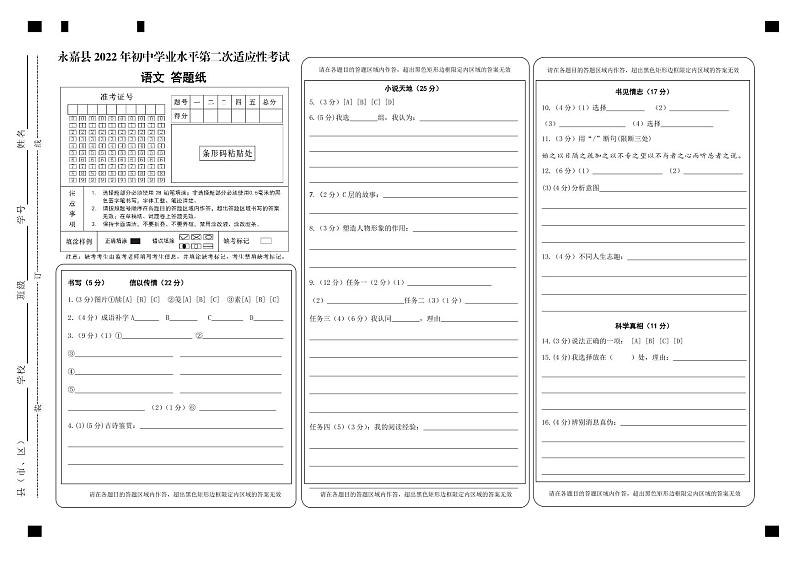 永嘉县 2022 年初中学业水平第二次适应性考试
语文 答题纸
准考证号
题号 一 二 三 四 五 总分
得分
条形码粘贴处
注意事项
1. 选择题部分必须使用 2B 铅笔填涂;非选择题部分必须使用0.5毫米的黑
色签字笔书写,字体工整、笔迹清楚。
2. 请按照题号顺序在各题目的答题区域内作答,超出答题区域书写的答案
无效;在草稿纸、试题卷上答题无效。
3. 保持卡面清洁,不要折叠、不要弄破,禁用涂改液、涂改胶条。
填涂样例 正确填涂 错点填涂 缺考标记
注意:缺考考生由监考老师填写考生信息,并填涂缺考标记,考生禁填缺考标记。
书写(5 分) 信以传情(22 分)
1.(3 分)图片①牍[A] [B] [C] ②笺[A] [B] [C] ③素[A] [B] [C]
2.(4 分)成语补字 A B C D
3.(9 分)(1)① ②
③
④
⑤
(2)(1 分)⑥
4.(1)(5 分)古诗鉴赏:
请在各题目的答题区域内作答,超出黑色矩形边框限定内区域的答案无效
请在各题目的答题区域内作答,超出黑色矩形边框限定内区域的答案无效
小说天地(25 分)
5.(3 分)[A] [B] [C] [D]
6.(5 分)我选 组,我认为:
7.(2 分)C 层的故事:
8.(3 分)塑造人物形象的作用:
9.(12 分)任务一(2 分)(1)
(2) 任务二(3 分)(1)
任务三(4)(6 分)我认同 ,理由
任务四(5)(3 分):我的阅读经验:
请在各题目的答题区域内作答,超出黑色矩形边框限定内区域的答案无效
请在各题目的答题区域内作答,超出黑色矩形边框限定内区域的答案无效
书见情志(17 分)
10.(4 分)(1)选择 (2)
(3) (4)选择
11.(3 分)用“/”断句(限断三处)
始之以日隔之疏加之以不专之望以不冉者之心而听忽者之说。
12.(6 分)(1) (2)
(3)(4 分)分析意图
13.(4 分)不同人生志趣:
科学真相(11 分)
14.(3 分)说法正确的一项: [A] [B] [C] [D]
15.(4 分)我选择放在( )处,理由:
16.(4 分)辨别消息真伪:
请在各题目的答题区域内作答,超出黑色矩形边框限定内区域的答案无效
县(市、区) 学校 班级 学号 姓名
装 订 线